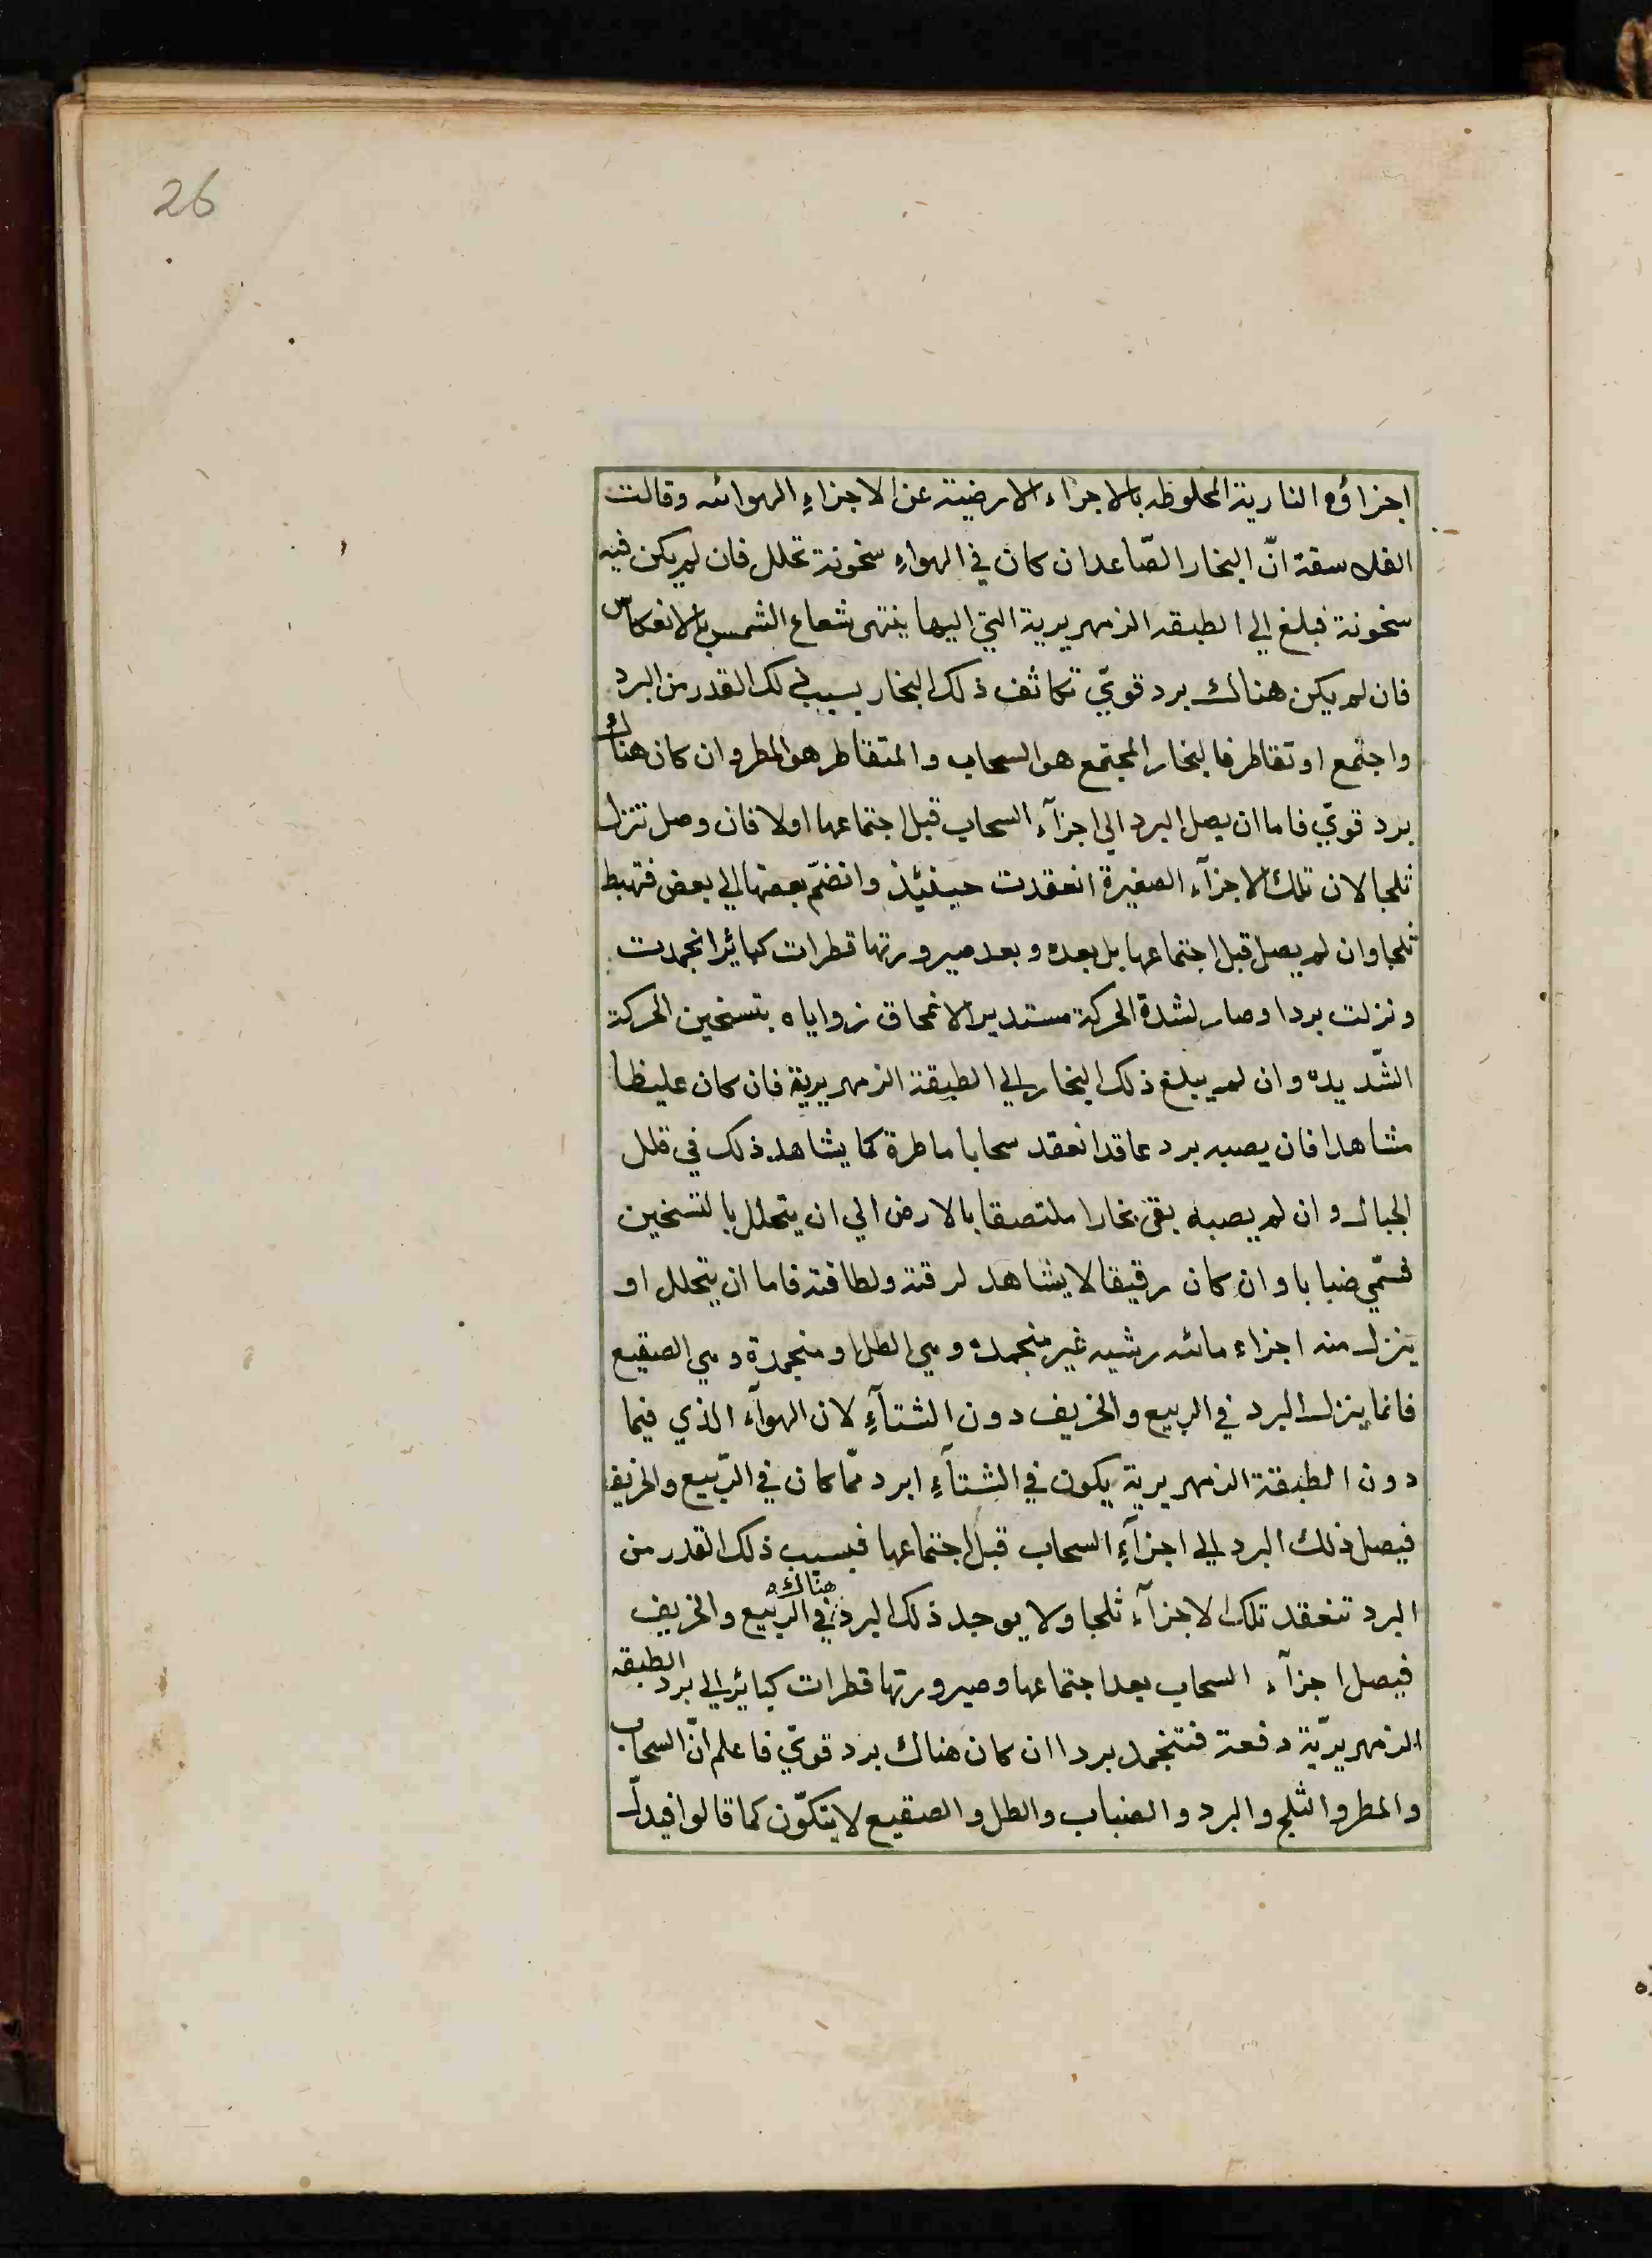 26
اجزاؤه النارية المخلوطه بالاجزاء الارضية عن الاجزاءِ الهوائه وقالت
الفلاسفة انّ البخار الصّاعد ان كان في الهواءِ سخونة تحلل فان لم يكن فيه
سخونة فبلغ الي الطبقه الزمهريرية التي اليها ينتهى شعاع الشمس بالانعكاس
فان لم يكن هناك برد قويّ تكاثف ذلك البخار بسبب ذلك القدر من البرد
واجتمع او تقاطر فالبخار المجتمع هو السحاب والمتقاطر هو المطر وان كان هناك
برد قويّ فاما ان يصل البرد الي اجزآء السحاب قبل اجتماعها اولا فان وصل تنزل
ثلجا لان تلك الاجزآء الصغيرة انعقدت حينئيذٍ وانضمّ بعضها الي بعض فتهبط
ثلجا وان لم يصل قبل اجتماعها بل بعده وبعد صيرورتها قطرات كبائر انجمدت
ونزلت بردا وصار لشدة الحركة مستديرا لانمحاق زواياه بتسخين الحركة
الشّديده وان لم يبلغ ذلك البخار الي الطبقة الزمهريرية فان كان غليظا
مشاهدا فان يصبه برد عاقد انعقد سحابا ماطرة كما يشاهد ذلك في قلل
الجبال وان لم يصبه بقى بخارا ملتصقا بالارض الي ان يتحلل بالتسخين
فسمّي ضبابا وان كان رقيقا لا يشاهد لرقته ولطافته فاما ان يتحلل او
ينزل منه اجزاء مائه رشيه غير منجمده وهي الطل او منجمدة وهي الصقيع
فانما ينزل البرد في الربيع والخريف دون الشتآءِ لان الهوآء الذي فيما
دون الطبقة الزمهريرية يكون في الشتآءِ ابرد ممّا كان في الرّبيع والخريف
فيصل ذلك البرد الي اجزآءِ السحاب قبل اجتماعها فبسبب ذلك القدر من
البرد تنعقد تلك الاجزآء ثلجا ولا يوجد ذلك البرد هناك في الربيع والخريف
فيصل اجزآء السحاب بعد اجتماعها وصيرورتها قطرات كبائر الي برد الطبقه
الزمهريريّة دفعة فتنجمد بردا ان كان هناك برد قويّ فاعلم انّ السحاب
والمطر والثلج والبرد والضباب والطل والصقيع لا يتكوّن كما قالوا فيدلّ